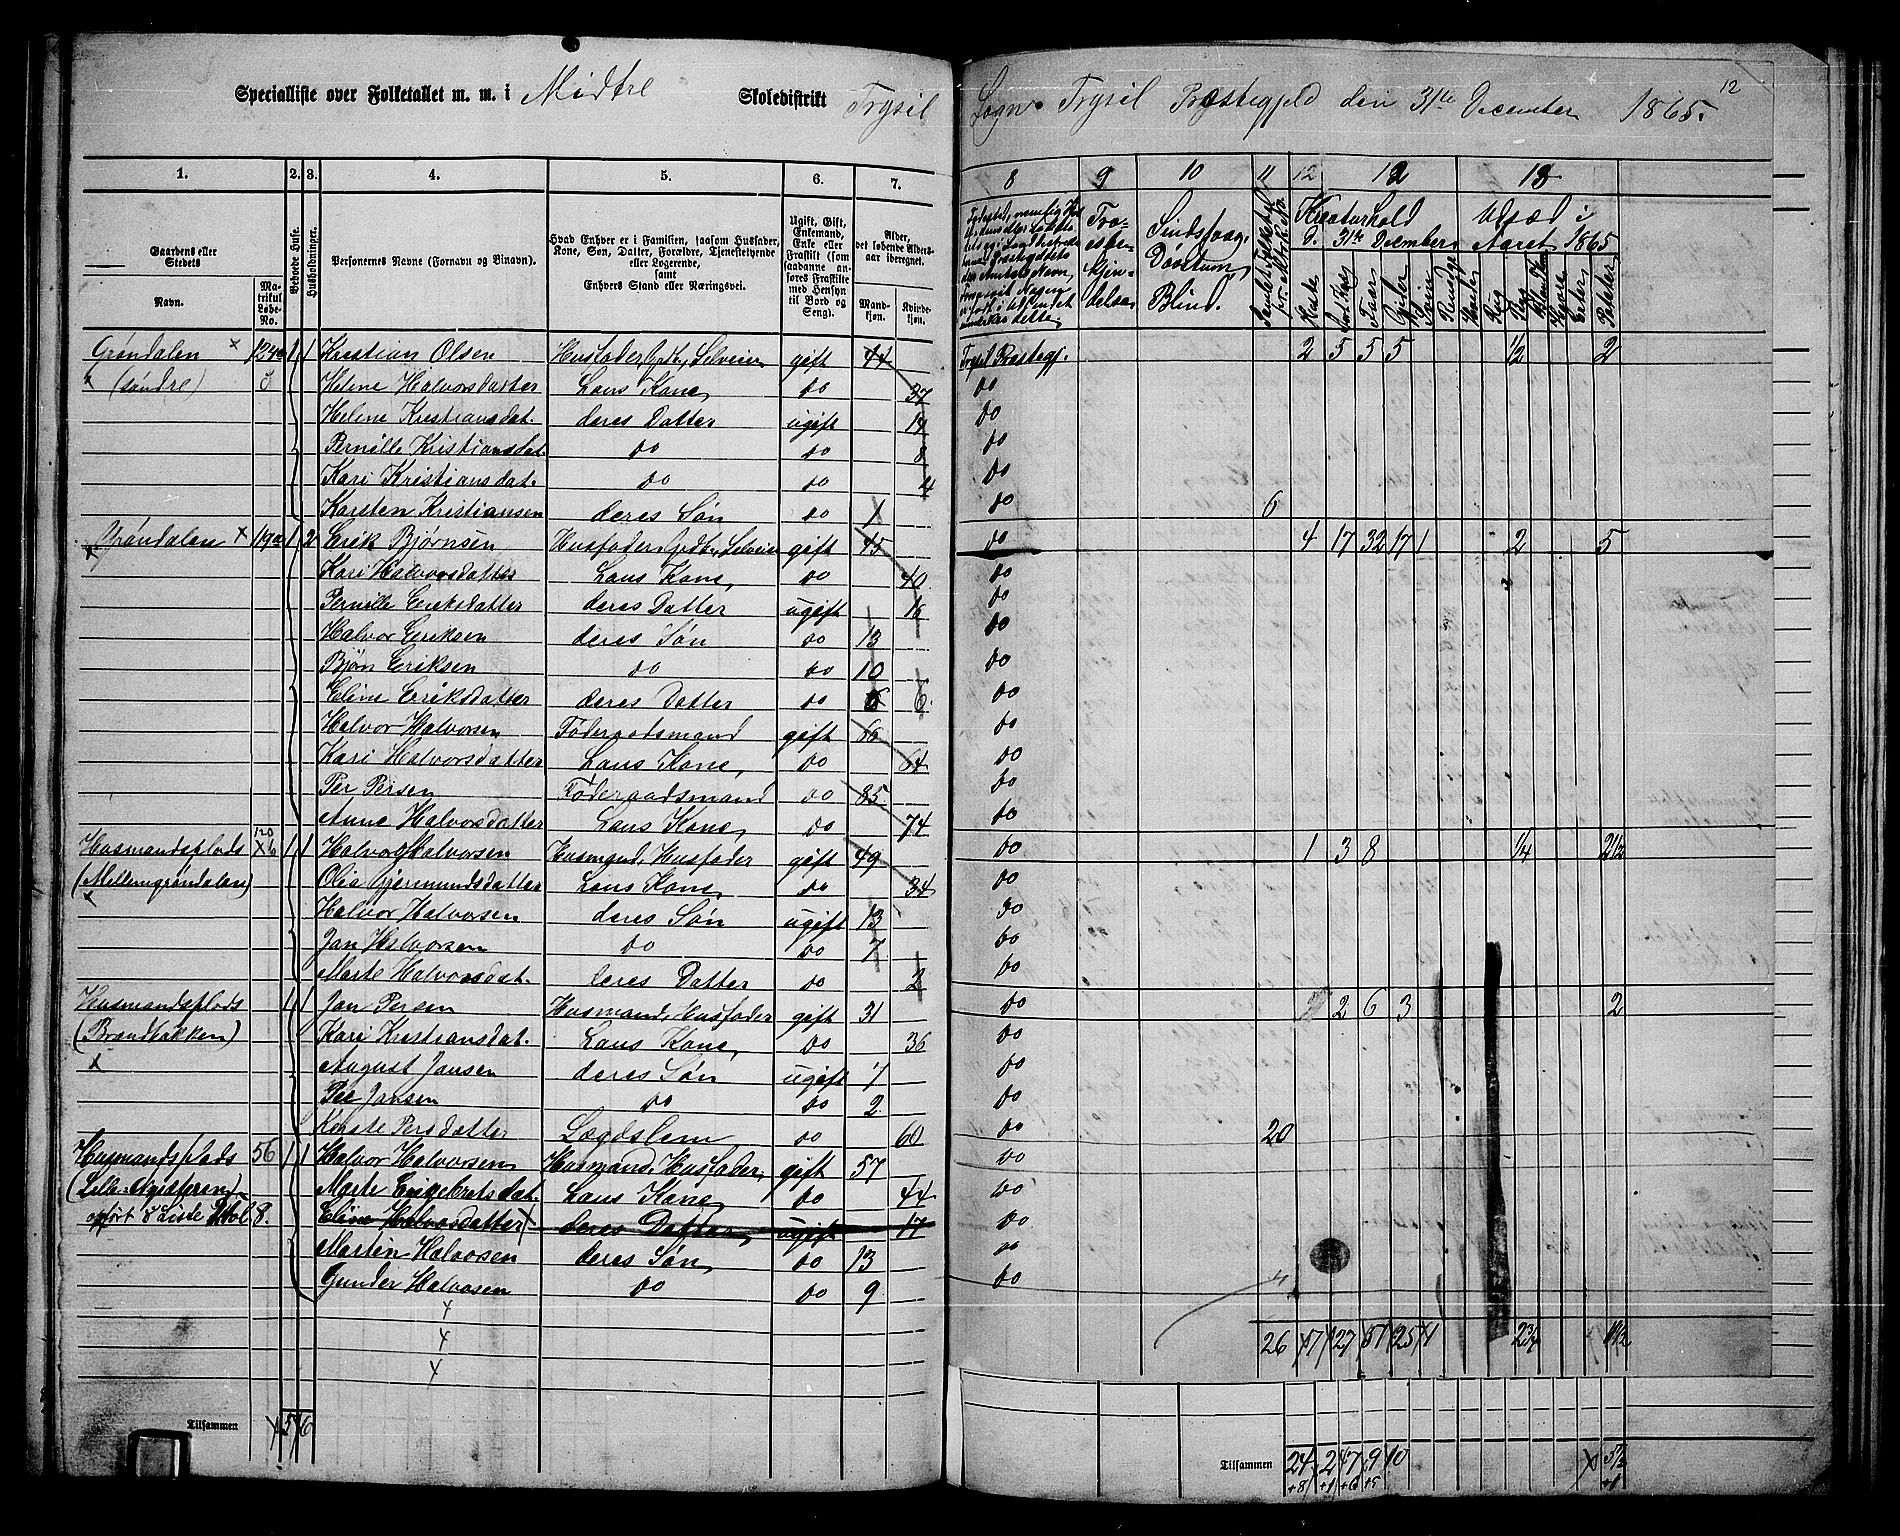 Specialliste over Folketallet m. m. i Midtre Skoledistrikt Trysil Sogn Trysil Præstegjeld den 31te December 1865.
12
1. 2. 3. 4. 5. 6. 7. 8 9 10 11 12 12 13
Gaardens eller Stedets
Navn.
Matrikul Løbe-No.
Beboede Huse.
Husholdninger.
Personernes Navne (Fornavn og Binavn).
Hvad Enhver er i Familien, saasom Husfader, Kone, Søn, Datter, Forældre, Tjenestetyende eller Logerende,
samt
Enhvers Stand eller Næringsvei.
Ugift, Gift, Enkemand, Enke eller Fraskilt (som saadanne anføres Fraskilte med Hensyn til Bord og Seng).
Alder, det løbende Aldersaar iberegnet.
Mandkjøn. Kvindekjøn.
Sindssvag, Døvstum, Blind.
Kreaturhold d. 31te December
Udsæd i Aaret 1865
Heste Faar Gjeder Svin Rug Byg Havre Erter Poteter
Grøndalen x 124 1 1 Kristian Olsen Husfader, Grdb., Selveier gift 44 Trysil Præstegj. 2 5 5 5 1/2 2
x (søndre) Helene Halvorsdatter Hans Kone, do 37 do
Helene Kristiansdat. deres Datter ugift 14 do
Pernille Kristiansdat. do do 8 do
Kari Kristiansdat. do do 4 do
Karsten Kristiansen deres Søn do 1 do 6
Grøndalen x 119a 1 2 Erik Bjørnsen Husfader, Grdb., Selveier gift 45 do 4 17 32 17 1 2 5
Kari Halvorsdatter Hans Kone, do 40 do
Pernille Eriksdatter deres Datter ugift 16 do
Halvor Eriksen deres Søn do 13 do
Bjøn Eriksen do do 10 do
Eline Eriksdatter deres Datter do 6 do
Halvor Halvorsen Føderaadsmand gift 66 do
Kari Halvorsdatter Hans Kone, do 64 do
Per Persen Føderaadsmand do 85 do
Anne Halvorsdatter Hans Kone, do 74 do
Husmandsplads 120 x b 1 1 Halvor Halvorsen Husmand, Husfader gift 49 do 1 3 8 1/4 2 1/2
(Mellemgrøndalen) Olia Gjermundsdatter Hans Kone, do 34 do
x Halvor Halvorsen deres Søn ugift 13 do
Jan Halvorsen do do 7 do
Marte Halvorsdat. deres Datter do 2 do
Husmandsplads 1 1 Jan Persen Husmand, Husfader gift 31 do 2 6 3 2
(Brandbakken) Kari Kristiansdat. Hans Kone, do 36 do
x August Jansen deres Søn ugift 7 do
Per Jansen do do 2 do
Kerste Persdatter Lægdslem do 60 do 20
Husmandsplads 56 1 1 Halvor Halvorsen Husmand, Husfader, gift 57 do
Marte Engebretsdat. Hans Kone, do 44 do
opført i Liste 8. Eline Halvorsdatter x deres Datter, ugift 17 do
Martin Halvorsen deres Søn, do 13 do
Gunder Halvosen do do 9 do
26 7 27 51 25 1 2 3/4
Tilsammen 5 6
Tilsammen